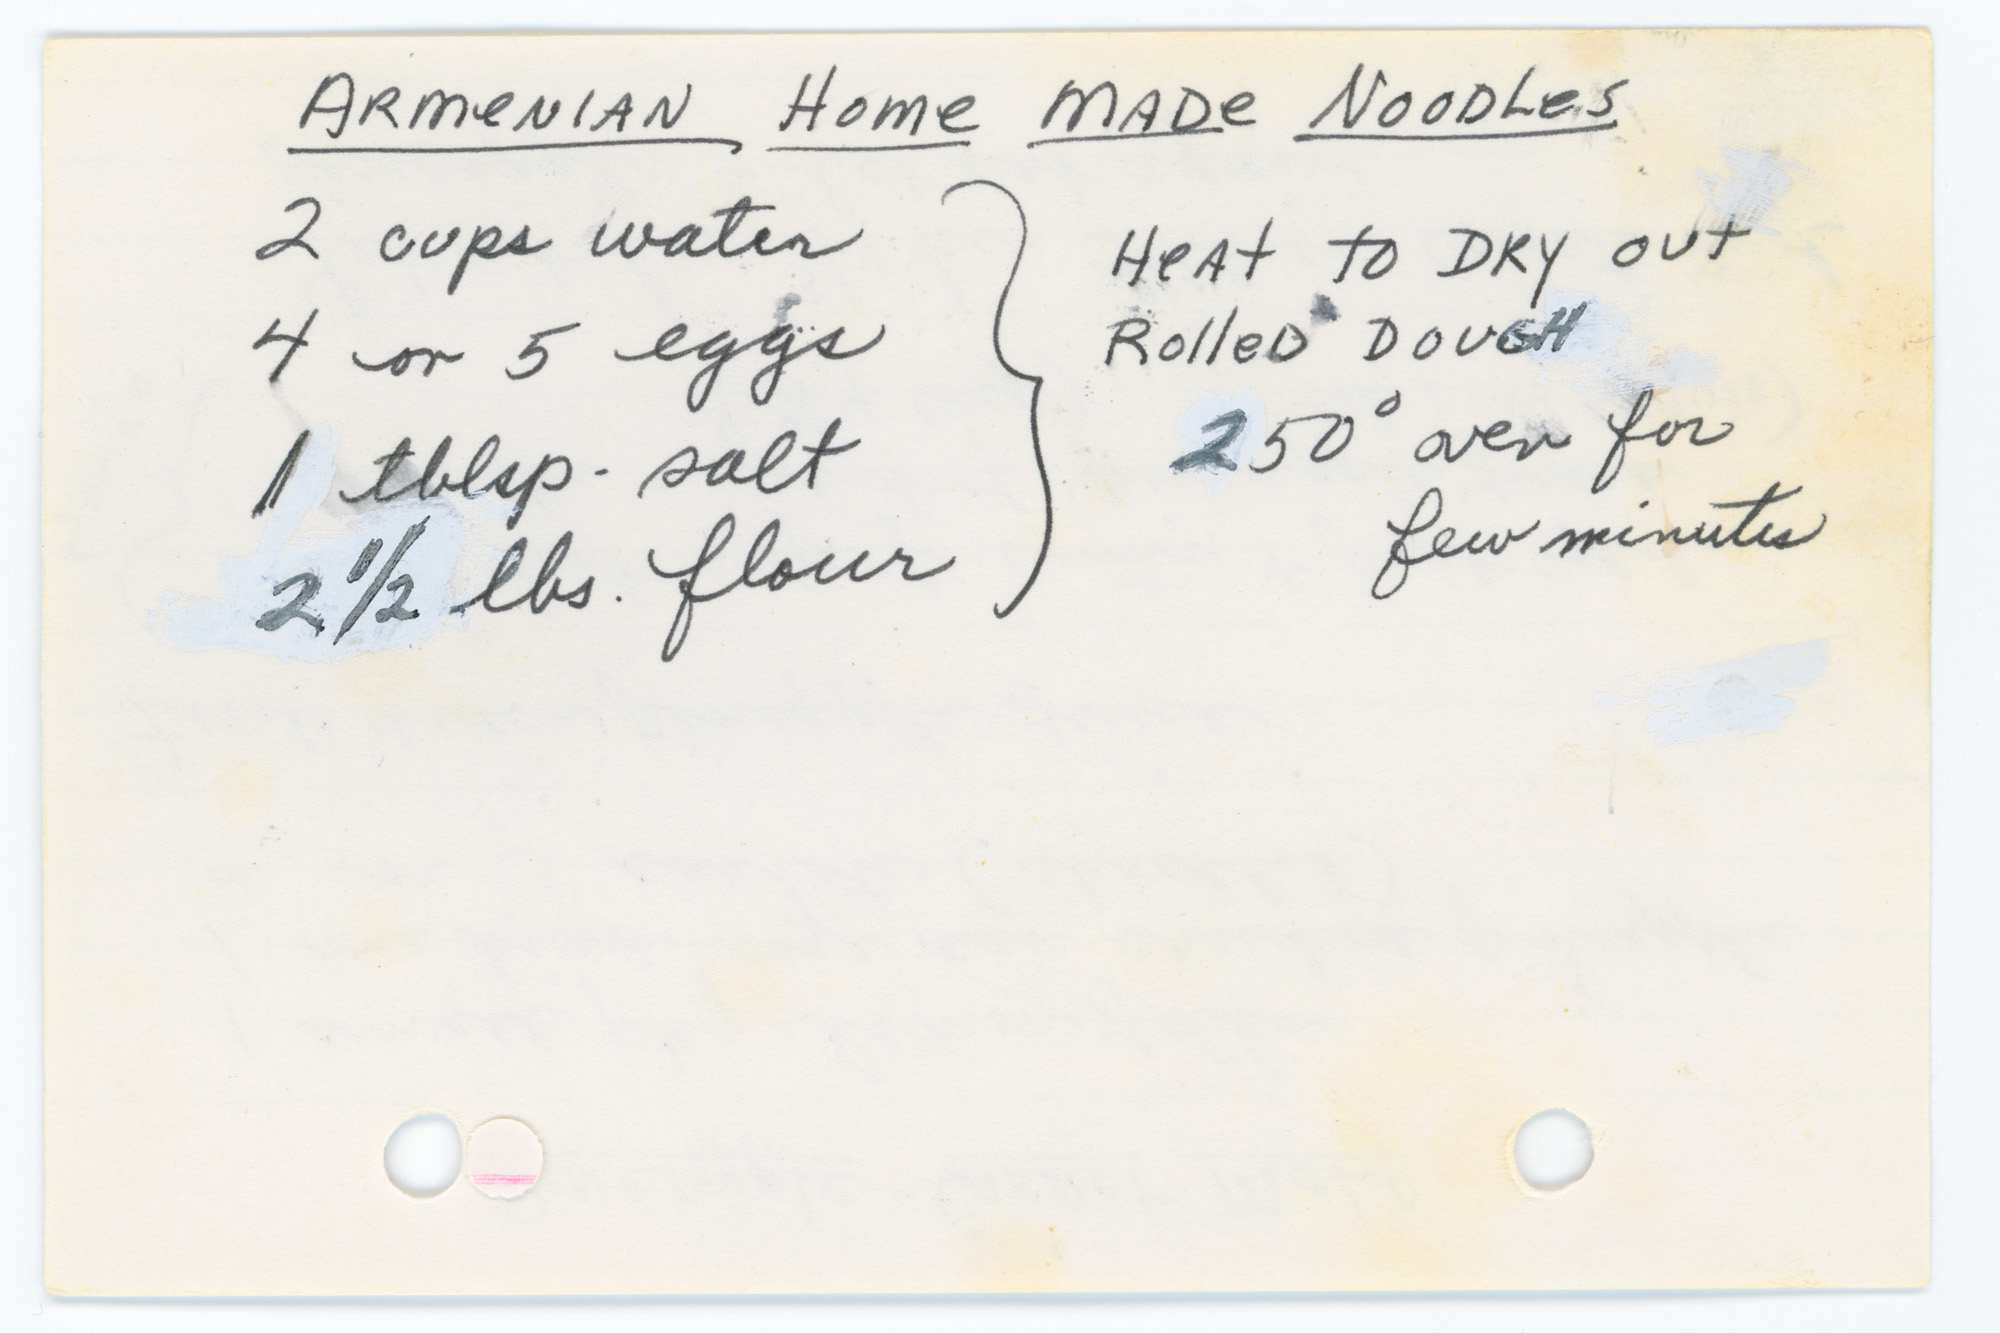 ARMENIAN HOME MADE NOODLES
2 cups water
4 or 5 eggs
1 tblsp. salt
2 1/2 lbs. flour
HEAT TO DRY OUT
ROLLED DOUGH
250° oven for
few minutes